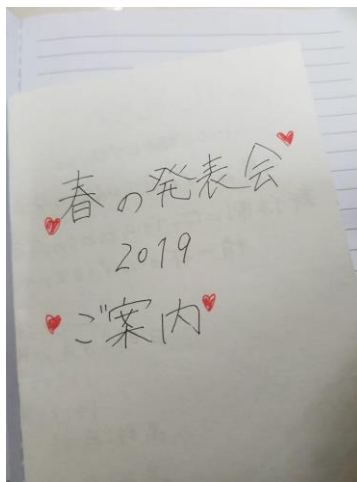 春の発表会
2019
ご案内